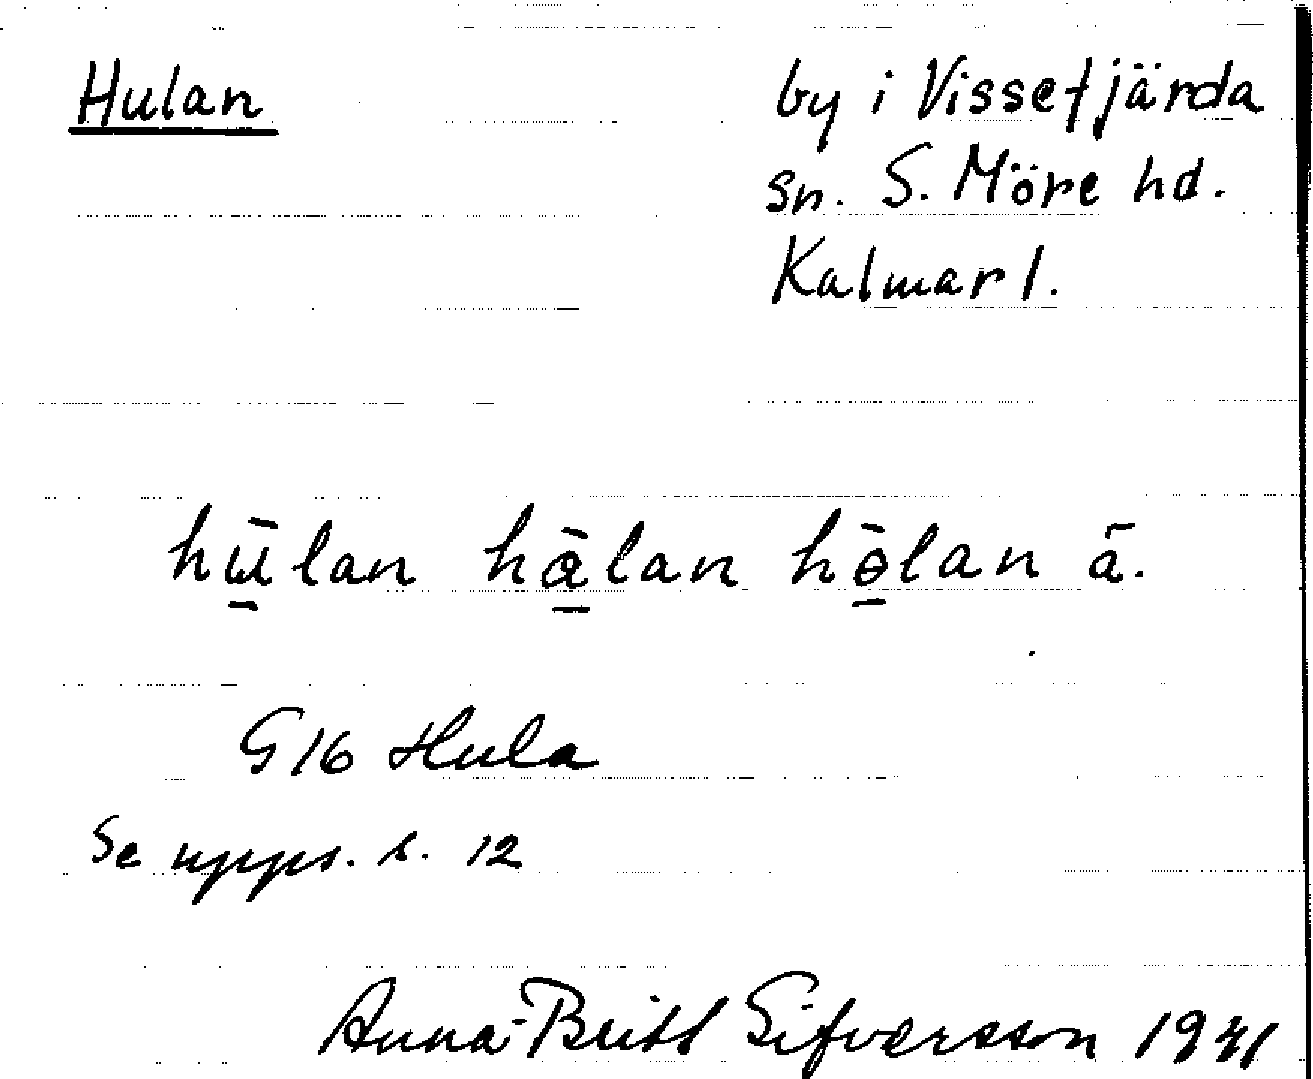 Hulan
by i Vissefjärda
sn. S. Möre hd.
Kalmar l.
hu̱̅lan hа̱̊lan hө̱̄lan ā.
G16 Hula
Se upps. s. 12
Anna-Britt Sifversson 1941